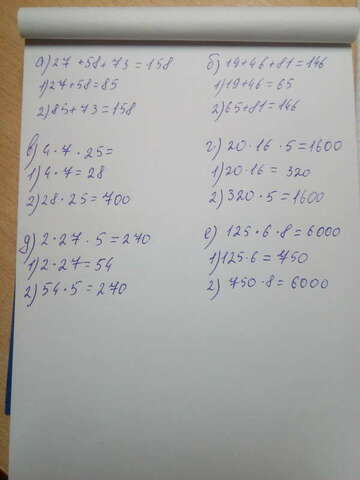 а) 27 + 58 + 73 = 158
1) 27 + 58 = 85
2) 85 + 73 = 158
б) 19 + 46 + 81 = 146
1) 19 + 46 = 65
2) 65 + 81 = 146
в) 4 · 7 · 25 =
1) 4 · 7 = 28
2) 28 · 25 = 700
г) 20 · 16 · 5 = 1600
1) 20 · 16 = 320
2) 320 · 5 = 1600
д) 2 · 27 · 5 = 270
1) 2 · 27 = 54
2) 54 · 5 = 270
е) 125 · 6 · 8 = 6000
1) 125 · 6 = 750
2) 750 · 8 = 6000